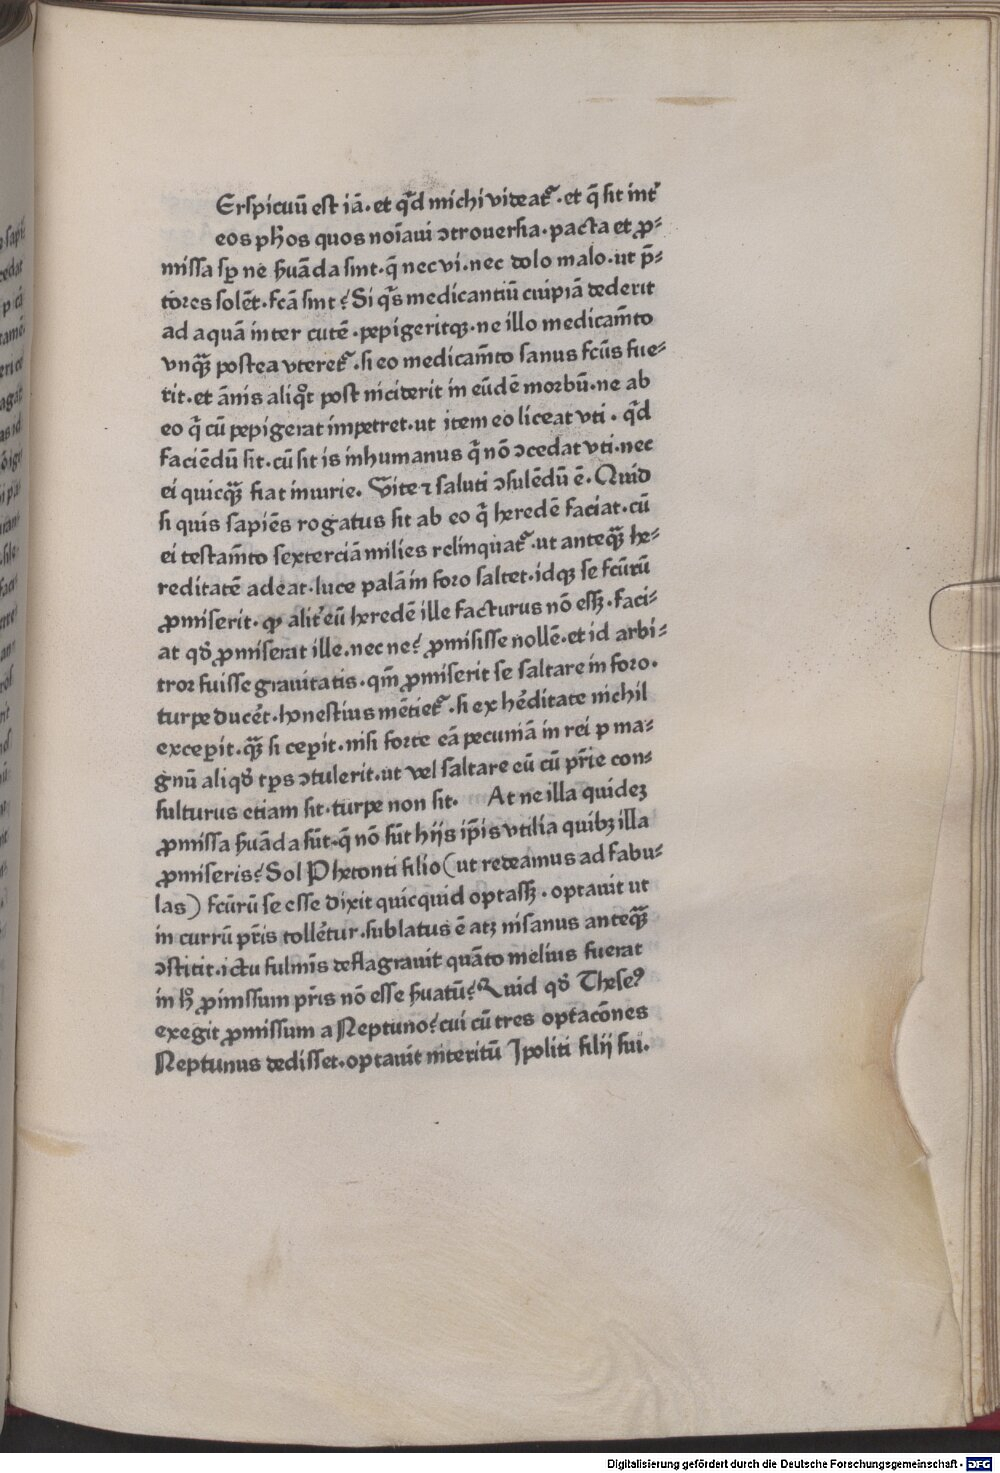 Erspicuū est iā. et qͥd michi videat᷑. et q̄ sit int̄
eos pħos quos noīaui ɔtrouersia. pacta et ꝓ-
missa sꝑ ne ẜuāda sint. q̄ nec vi. nec dolo malo. ut p̄-
tores solēt. fcā sint? Si qͥs medicantiū cuipiā dederit
ad aquā inter cutē. pepigeritqꝫ. ne illo medicam̄to
vnqꝫ̄ postea uteret᷑. si eo medicam̄to sanus fcūs fue-
rit. et ānis aliqͦt post inciderit in eūdē morbū. ne ab
eo q̄ cū pepigerat impetret. ut item eo liceat vti. qͥd
faciēdū sit. cū sit is inhumanus q̄ nō ɔcedat vti. nec
ei quicqꝫ̄ fiat iniurie. Vite ⁊ saluti ɔsulēdū ē. Quid
si quis sapiēs rogatus sit ab eo q̄ heredē faciat. cū
ei testam̄to sexterciā milies relinquat᷑. ut anteqꝫ̄ he-
reditatē adeat. luce palā in foro saltet. idqꝫ se fcūrū
ꝓmiserit. ꝙ alit̄ eū heredē ille facturus nō essꝫ. faci-
at qͦd ꝓmiserat ille. nec ne? ꝓmisisse nollē. et id arbi-
tror fuisse grauitatis. qm̄ ꝓmiserit se saltare in foro.
turpe ducēt. honestius mētiet᷑. si ex hēditate nichil
exceperit. qꝫ̄ si ceperit. nisi forte eā pecuniā in rei p ma-
gnū aliqͦd tp̄s ɔtulerit. ut vel saltare eū cū pr̄ie con-
sulturus etiam sit. turpe non sit. At ne illa quideꝫ
ꝓmissa ẜuāda sūt. q̄ nō sūt hijs ip̄is vtilia quibꝫ illa
ꝓmiseris? Sol Phetonti filio (ut redeamus ad fabu-
las) fcūrū se esse dixit quicquid optassꝫ. optauit ut
in currū pr̄is tollētur. sublatus ē atꝫ insanus anteqꝫ̄
ɔstitit. ictu fulmīs deflagrauit quāto melius fuerat
in hͦ ꝓimssum pr̄is nō esse ẜuatū? Quid qͦd Theseꝰ
exegit ꝓmissum a Neptuno? cui cū tres optacōnes
Neptunus dedisset. optauit interitū Ipoliti filij sui.
Digitalisierung gefördert durch die Deutsche Forschungsgemeinschaft - DFG